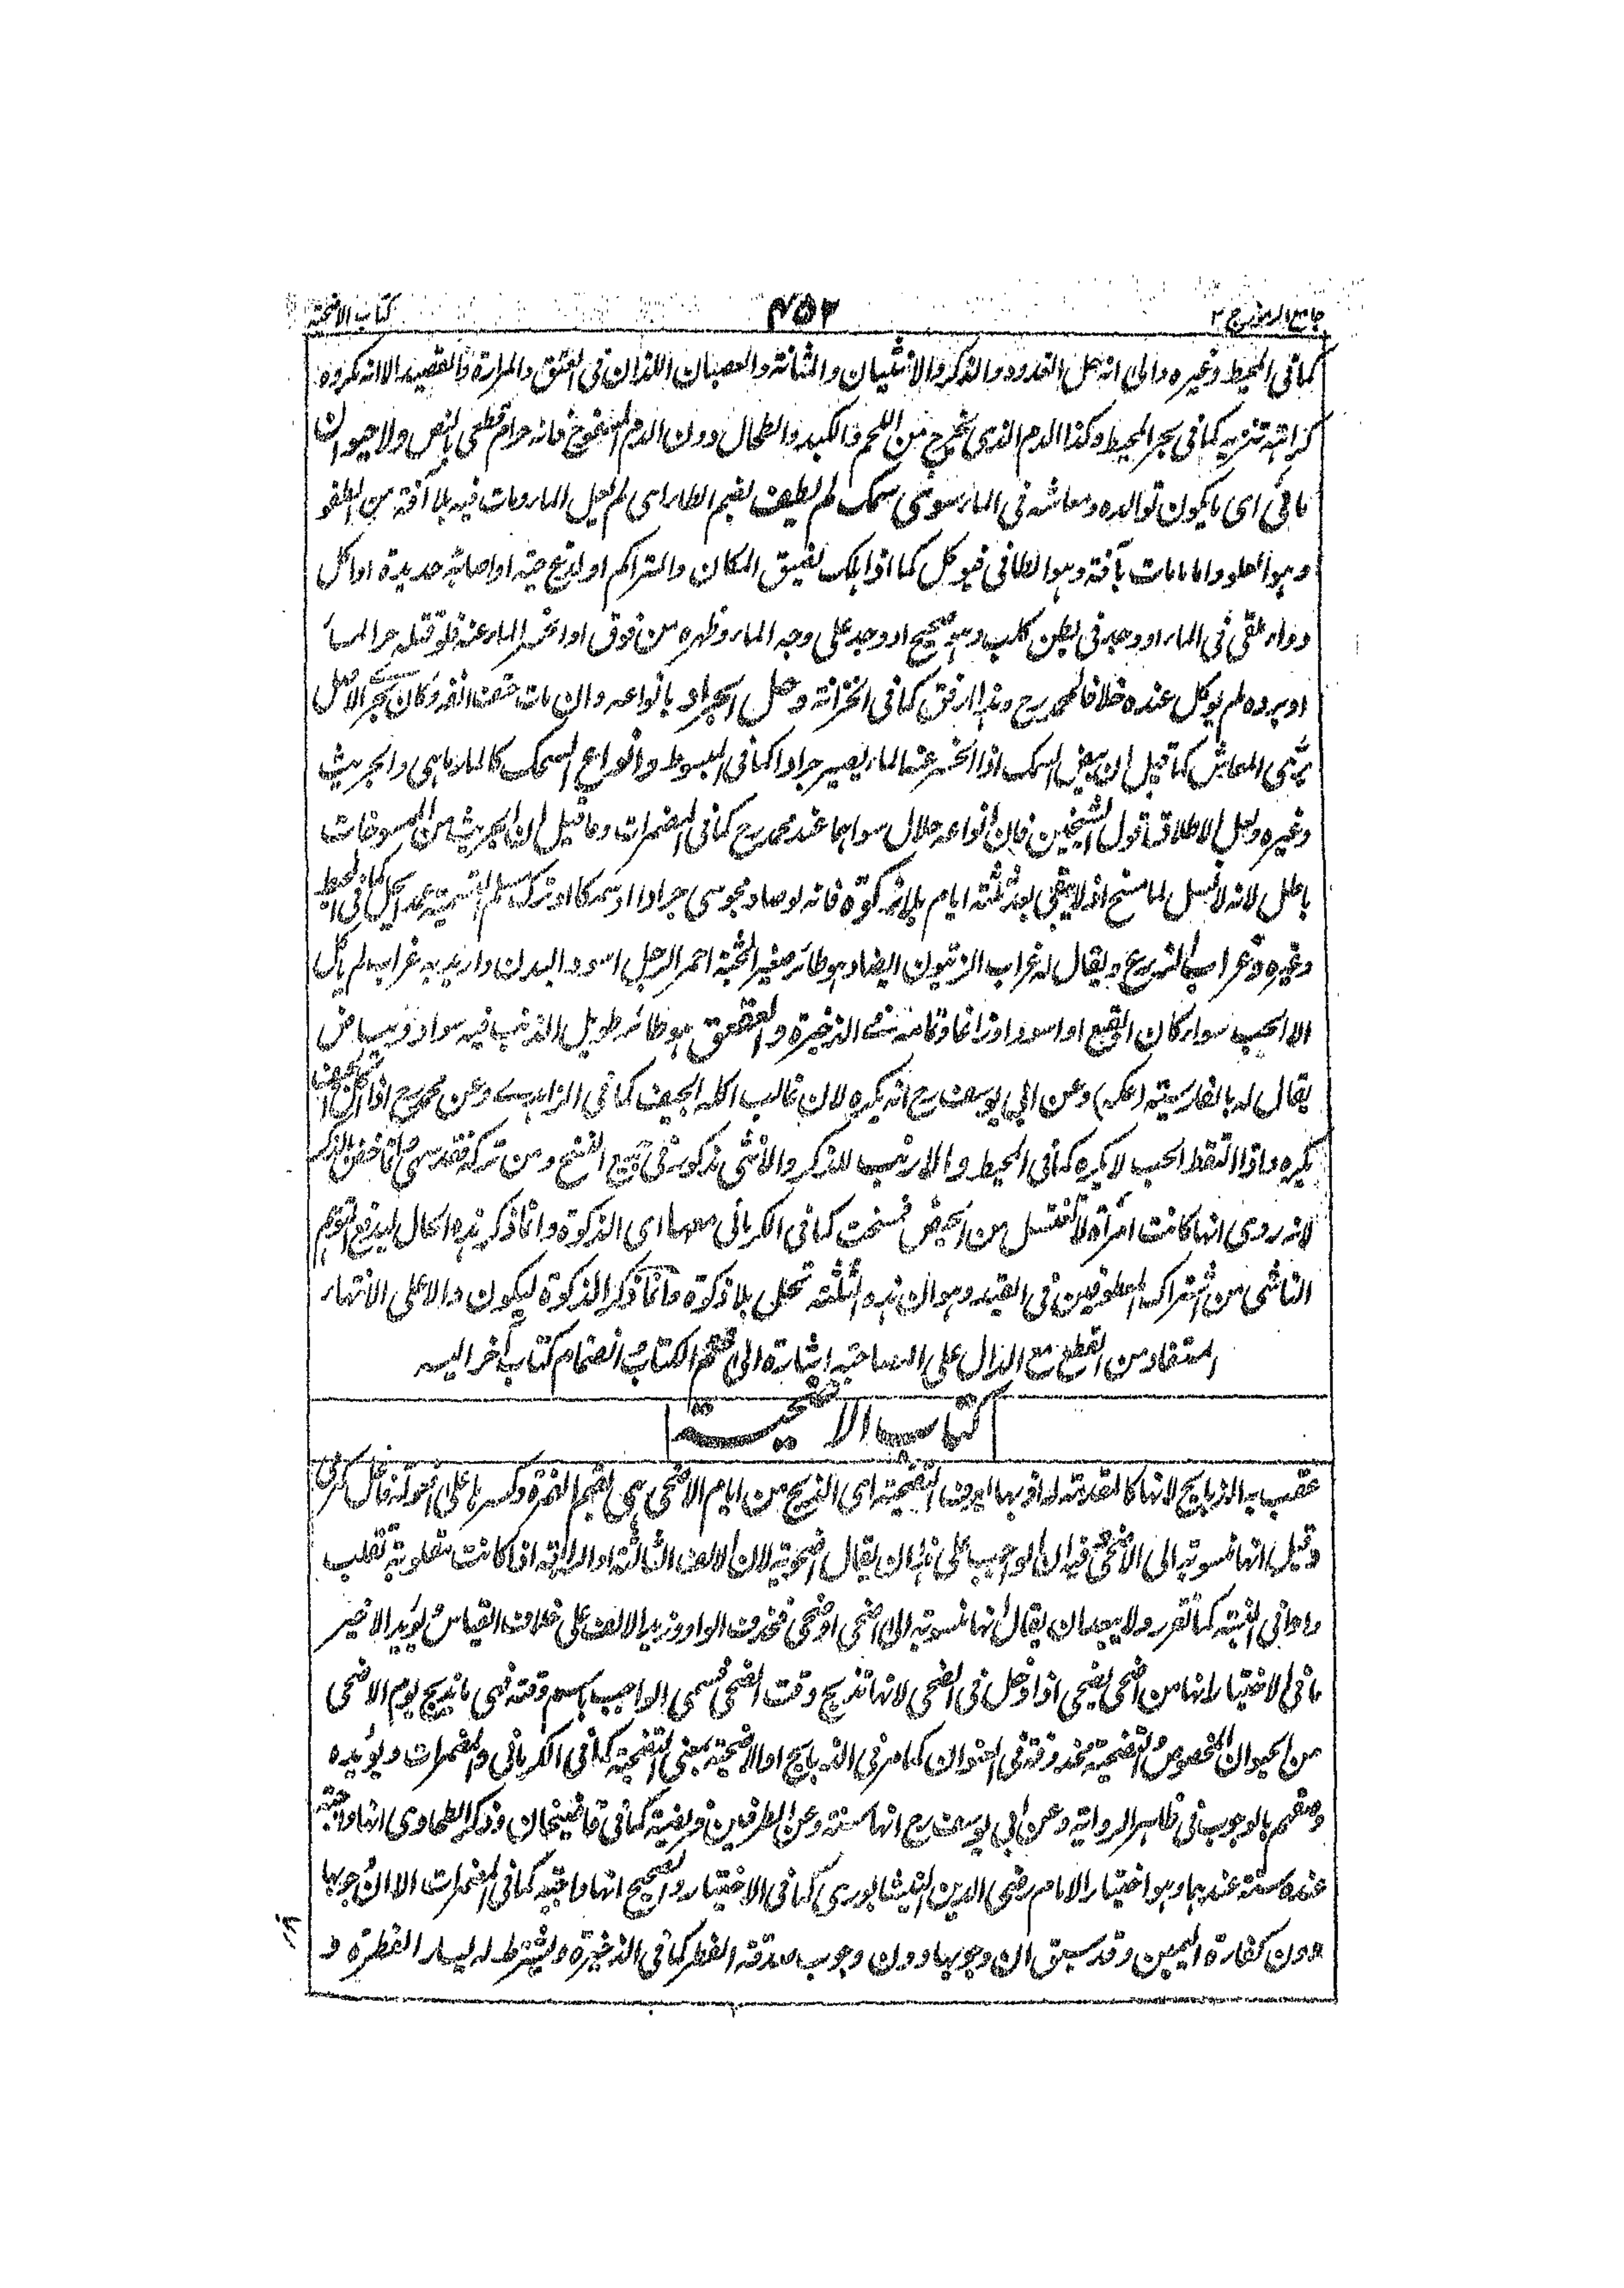 جامع الرموز ج ٣
٤٥٣
كتاب الاضحية
كما في المحيط وغيره والى انه يحل الغدود والذكر والانثيان والمثانة والعصبان اللذان في العنق والمرارة والقصيد الا انه مكروه
كراهة تنزيه كما في بحر المحيط وكذا الدم الذى يخرج من اللحم والكبد والطحال دون الدم المسفوح فانه حرام قطعى بالنص ولا حيوان
مائي اى ما يكون توالده ومعاشه في الماء سوى سمك لم يطف بضم الطاء اى لم يعل الماء ومات فيه بلا آفة من الطفو
وهو العلو واما ما مات بآفة وهو الطافي فيوكل كما اذا هلك لضيق المكان والتراكم او لذع حية او اصابة حديدة او اكل
دواء يلقى في الماء او وجد في بطن كلب وهو صحيح او وجد على وجه الماء وظهره من فوق او انحسر الماء عنه فلو قتله حر الماء
او برده لم يوكل عنده خلافا لمحمد رح وهذا ارفق كما في الخزانة وحل الجراد بانواعه وان مات حتف انفه وكان بحرى الاصل
برى المعاش كما قيل ان بيض السمك اذا انحسر عنه الماء يصير جرادا كما في المبسوط وانواع السمك كالمارماهى والجريث
وغيره ولعل الاطلاق قول الشيخين فان انواعه حلال سواهما عند محمد رح كما في المضمرات وما قيل ان الجريث من الممسوخات
باطل لانه لا نسل لما مسخ اذ لا يبقى بعد ثلثة ايام بلا ذكوة فانه لو صاد مجوسى جرادا او سمكا او ترك مسلم التسمية عمدا يحل كما في المحيط
وغيره وغراب الزرع ويقال له غراب الزيتون ايضا وهو طائر صغير الجثة احمر الرجل اسود البدن واريد به غراب لم ياكل
الا الحب سواء كان ابقع او اسود او زاغا وتمامه في الذخيرة والعقعق هو طائر طويل الذنب فيه سواد وبياض
يقال له بالفارسية (عكه) وعن ابي يوسف رح انه يكره لان غالب اكله الجيف كما في الزاهدى وعن محمد رح اذا اكل الجيف
يكره واذا التقط الحب لا يكره كما في المحيط والارنب للذكر والانثى مذكورة في جميع النسخ ومن تركه فقد سهى وانما خص بالذكر
لانه روى انها كانت امرأة لا تغتسل من الحيض فمسخت كما في الكرماني معها اى الذكوة وانما ذكر هذه الحال ليدفع التوهم
الناشى من اشتراك المعطوفين في القيد وهو ان هذه الثلثة تحل بلا ذكوة وانما ذكر الذكوة ليكون دالا على الانتهاء
المستفاد من القطع مع الدال على المصاحبة اشارة الى ختم الكتاب وانضمام كتاب آخر اليه
كتاب الاضحية
عقب به الذبايح لانها كالمقدمة له اذ بها يعرف التضحية اى الذبح من ايام الاضحى هى بضم الهمزة وكسرها على افعولة فاعل كمرمى
وقيل انها منسوبة الى الاضحى وفيه ان الوجوب على هذا ان يقال اضحوية لان الالف الثالثة او الرابعة اذا كانت مقلوبة تقلب
واوا في النسبة كما تقرر ولا يبعد ان يقال انها منسوبة الى اضحى اوضحى فحذفت الواو وزيد الالف على خلاف القياس ويويد الاخير
ما في الاختيار انها من اضحى يضحى اذا دخل في الضحى لانها تذبح وقت الضحى فسمى الواجب باسم وقته فهى ما يذبح يوم الاضحى
من الحيوان المخصوص والتضحية محذوفة في العنوان كما مر في الذبايح او الاضحية بمعنى التضحية كما في الكرماني والمضمرات ويؤيده
وصفهم بالوجوب في ظاهر الرواية وعن ابي يوسف رح انها سنة وعن الطرفين فريضة كما في قاضيخان وذكر الطحاوى انها واجبة
عنده سنة عندهما وهو اختيار الامام رضى الدين النيشابورى كما في الاختيار والصحيح انها واجبة كما في المضمرات الا ان وجوبها
دون كفارة اليمين وقد سبق ان وجوبها دون وجوب صدقة الفطر كما في الذخيرة ويشترط له ليسار الفطرة و